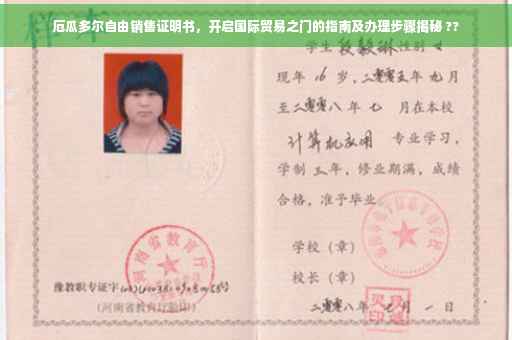 厄瓜多尔自由销售证明书，开启国际贸易之门的指南及办理步骤揭秘 ??
样本
学生段毅琳性别女
现年 16 岁，二零零五年 九月
至二零零八年 七 月在本校
计算机应用 专业学习，
学制 三年，修业期满，成绩
合格，准予毕业
学校（章）
校长（章）
二零零八年 七月 一日
河南省教育厅
豫教职专证字
（河南省教育厅验印）